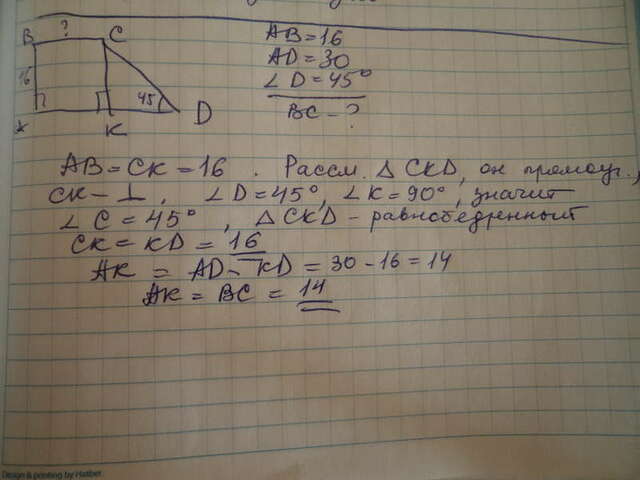 B ? C
16
45
K D
AB = 16
AD = 30
∠ D = 45°
BC – ?
AB = CK = 16 . Рассм. △ CKD, он прямоуг.,
CK – ⊥ , ∠ D = 45°, ∠ K = 90°, значит
∠ C = 45° , △ CKD – равнобедренный
CK = KD = 16
AK = AD – KD = 30 – 16 = 14
AK = BC = 14
Design & printing by Hatber.